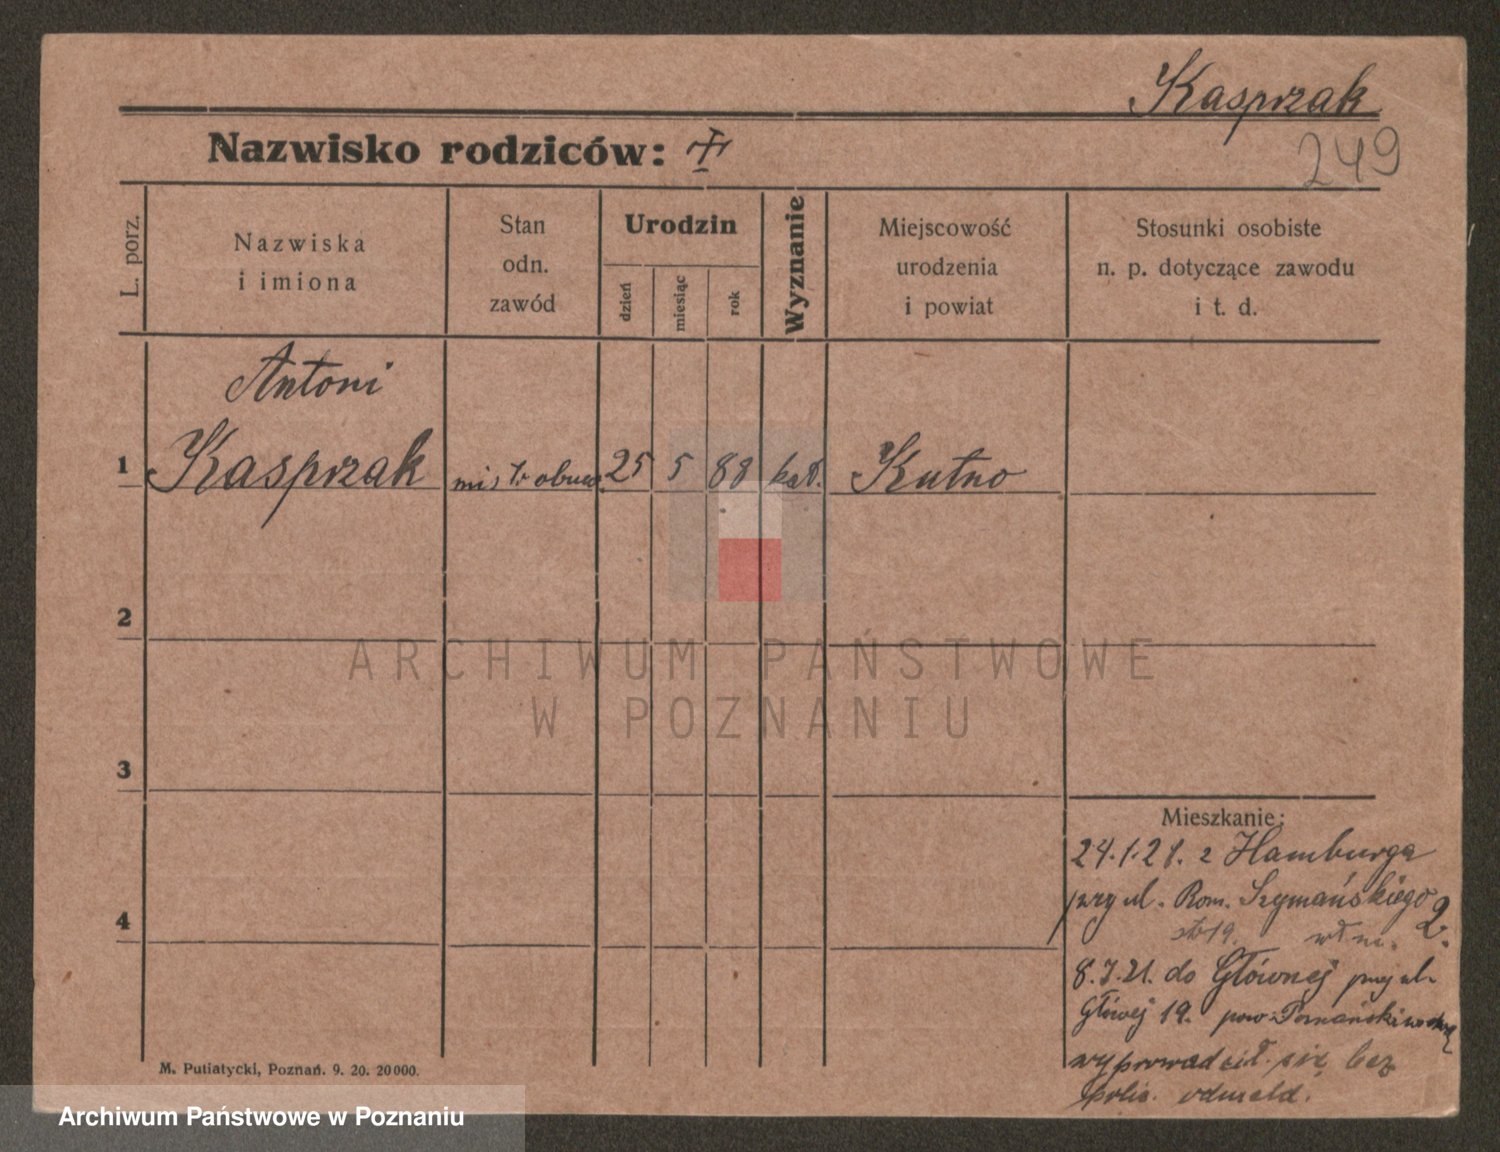 Kasprzak
249
Nazwisko rodziców:
L. porz.
Nazwiska
i imiona
Stan
odn.
zawód
Urodzin
dzień
miesiąc
rok
Wyznanie
Miejscowość
urodzenia
i powiat
Stosunki osobiste
n. p. dotyczące zawodu
i t. d.
Antoni
1 Kasprzak mistr obuw. 25 5 88 kat. Kutno
2
ARCHIWUM PAŃSTWOWE
W POZNANIU
3
Mieszkanie:
24.1.21. z Hamburga
przy ul. Rom. Szymańskiego 2.
4
8.7.21. do Głównej przy ul.
Główej 19. pow.
wyprowadził się bez
polic. odmeld.
M. Putiatycki, Poznań. 9. 20. 20000.
Archiwum Państwowe w Poznaniu